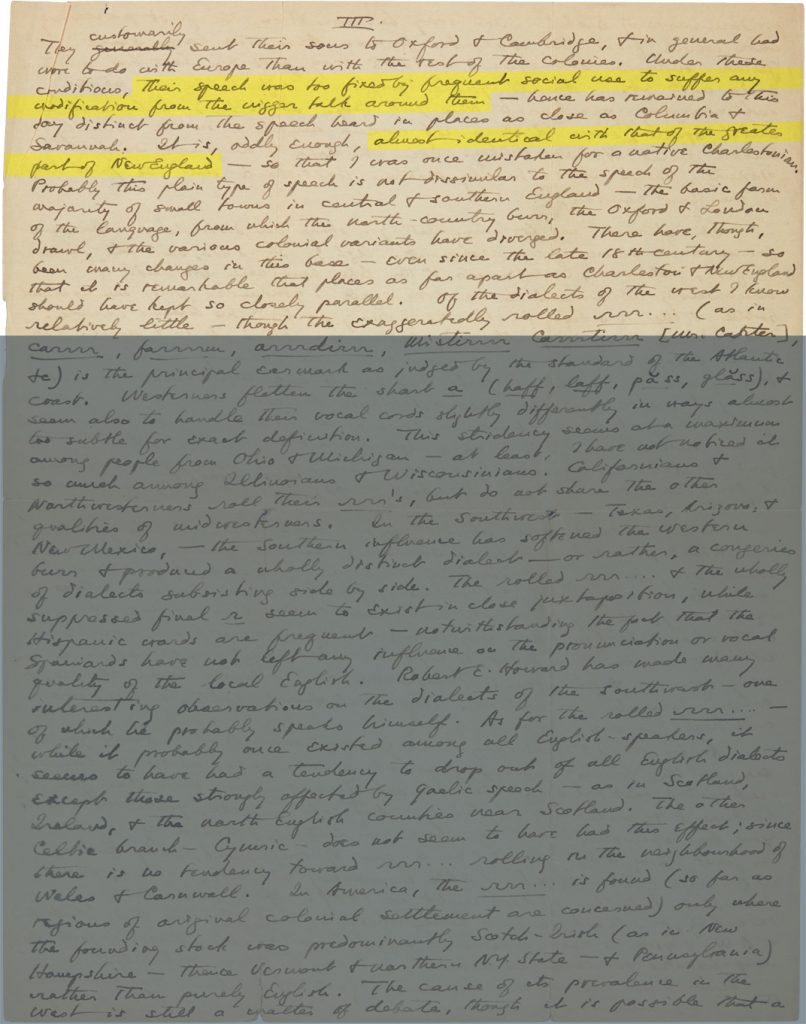 III.
customarily
They generally sent their sons to Oxford & Cambridge, & in general had
more to do with Europe than with the rest of the Colonies. Under these
conditions, their speech was too fixed by frequent social use to suffer any
modification from the nigger talk around them — hence has remained to this
day distinct from the speech heard in places as close as Columbia &
Savannah. It is, oddly enough, almost identical with that of the greater
part of New England — so that I was once mistaken for a native Charlestonian.
Probably this plain type of speech is not dissimilar to the speech of the
majority of small towns in central & southern England — the basic form
of the language, from which the north-country burr, the Oxford & London
drawl, & the various colonial variants have diverged. There have, though,
been many changes in this base — even since the late 18th century — so
that it is remarkable that places as far apart as Charleston & New England
should have kept so closely parallel. Of the dialects of the west I know
relatively little — though the exaggeratedly rolled rrrr... (as in
carrrr, farrrrm, arrrdirrr, Misterrrr Carrrterrr [Mr. Carter],
&c) is the principal earmark as judged by the standard of the Atlantic
coast. Westerners flatten the short a (haff, laff, păss, glăss), &
seem also to handle their vocal cords slightly differently in ways almost
too subtle for exact definition. This stridency seems at a maximum
among people from Ohio & Michigan — at least, I have not noticed it
so much among Illinoians & Wisconsinians. Californians &
Northwesterners roll their rrrr's, but do not share the other
qualities of midwesterners. In the Southwest — Texas, Arizona, &
New Mexico, — the Southern influence has softened the western
burr & produced a wholly distinct dialect — or rather, a congeries
of dialects subsisting side by side. The rolled rrrr.... & the wholly
suppressed final r seem to exist in close juxtaposition, while
Hispanic words are frequent — notwithstanding the fact that the
Spaniards have not left any influence on the pronunciation or vocal
quality of the local English. Robert E. Howard has made many
interesting observations on the dialects of the southwest — one
of which he probably speaks himself. As for the rolled rrrr.... —
while it probably once existed among all English-speakers, it
seems to have had a tendency to drop out of all English dialects
except those strongly affected by Gaelic speech — as in Scotland,
Ireland, & the north English counties near Scotland. The other
Celtic branch — Cymric — does not seem to have had this effect; since
there is no tendency toward rrrr... rolling in the neighbourhood of
Wales & Cornwall. In America, the rrrr... is found (so far as
regions of original colonial settlement are concerned) only where
the founding stock was predominantly Scotch-Irish (as in New
Hampshire — thence Vermont & northern N.Y. State — & Pennsylvania)
rather than purely English. The cause of its prevalence in the
west is still a matter of debate, though it is possible that a